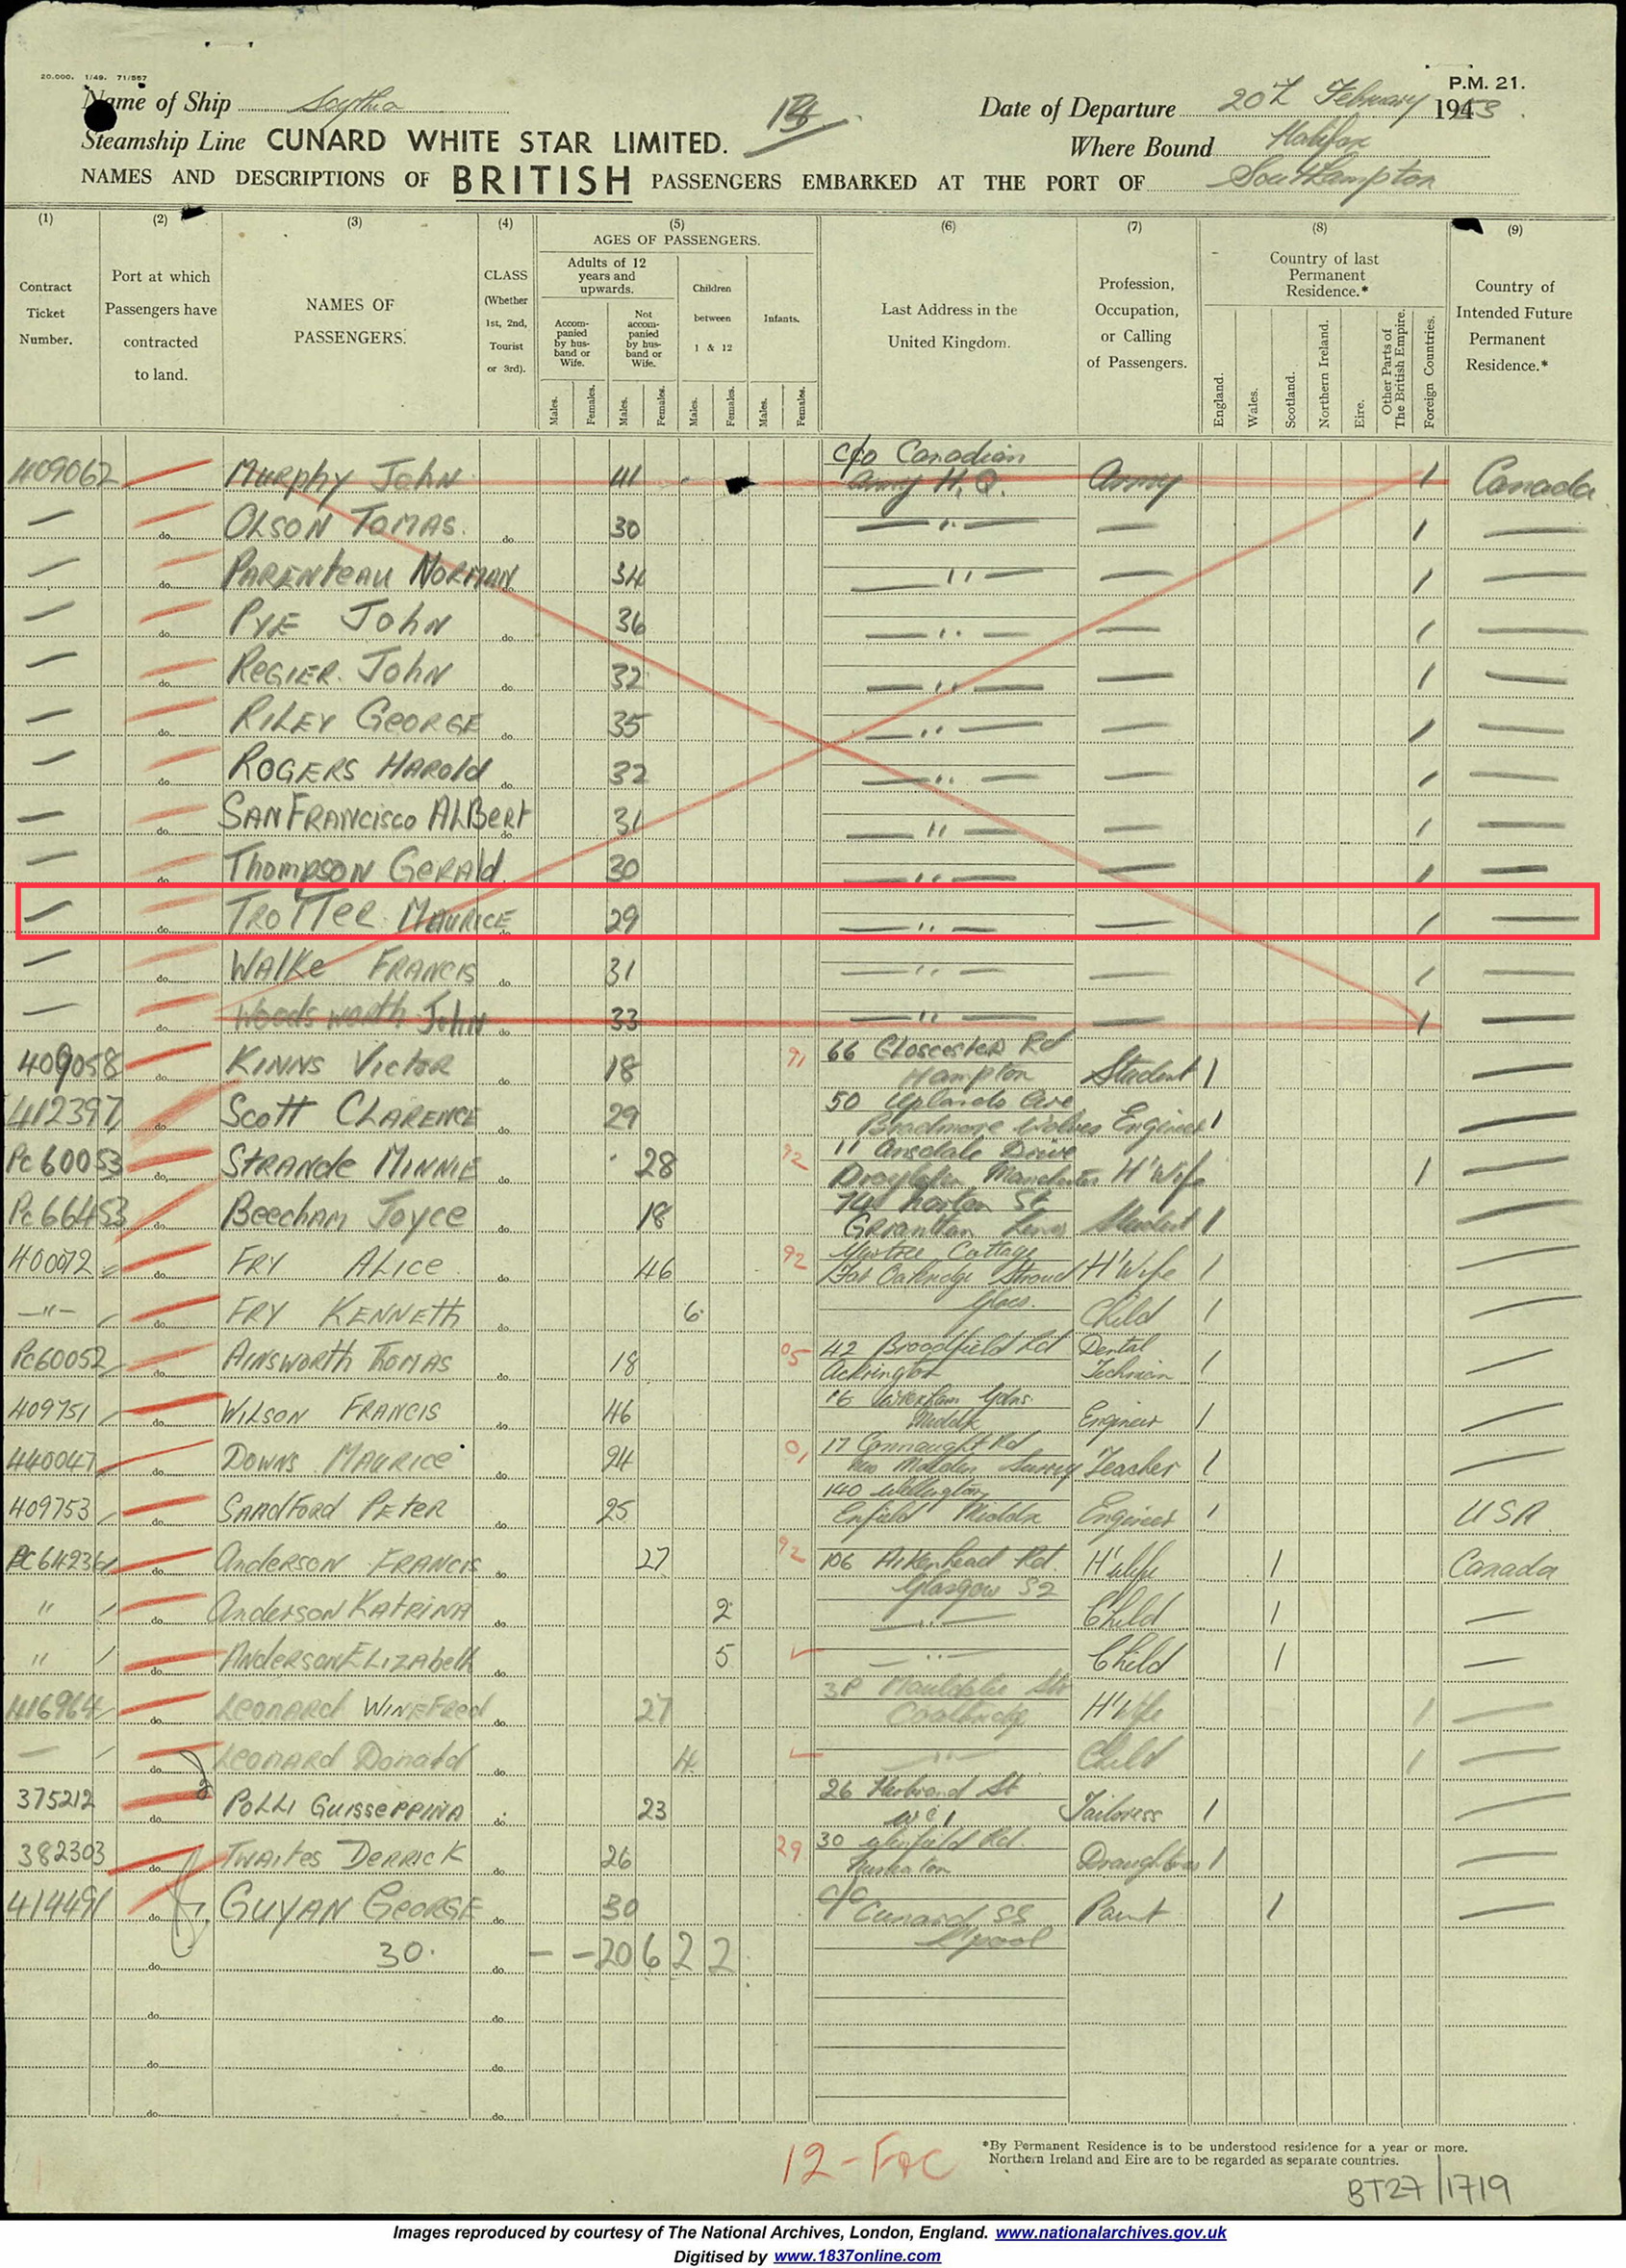 20.000. 1/49. 71/557
P.M. 21.
Name of Ship Scythia
Date of Departure 20th February 1953
Steamship Line CUNARD WHITE STAR LIMITED.
Where Bound Halifax
NAMES AND DESCRIPTIONS OF BRITISH PASSENGERS EMBARKED AT THE PORT OF Southampton
(1) (2) (3) (4) (5) (6) (7) (8) (9)
Contract Ticket Number.
Port at which Passengers have contracted to land.
NAMES OF PASSENGERS.
CLASS (Whether 1st, 2nd, Tourist or 3rd).
AGES OF PASSENGERS.
Adults of 12 years and upwards.
Accompanied by husband or Wife.
Not accompanied by husband or Wife.
Children between 1 & 12
Infants.
Males. Females. Males. Females. Males. Females. Males. Females.
Last Address in the United Kingdom.
Profession, Occupation, or Calling of Passengers.
Country of last Permanent Residence.*
England. Wales. Scotland. Northern Ireland. Eire. Other Parts of The British Empire. Foreign Countries.
Country of Intended Future Permanent Residence.*
409062 Murphy John 41 c/o Canadian Army H.Q. Army 1 Canada
— do OLSON TOMAS. do 30 — " — — 1 —
— do PARENTEAU NORMAN do 34 — " — — 1 —
— do PYE John do 36 — " — — 1 —
— do REGIER. John do 32 — " — — 1 —
— do RILEY GEORGE do 35 — " — — 1 —
— do ROGERS HAROLD do 32 — " — — 1 —
— do SANFRANCISCO ALBERT do 31 — " — — 1 —
— do THOMPSON GERALD 30 — " — — 1 —
— do TROTTER MAURICE do 29 — " — — 1 —
— do WALKE FRANCIS do 31 — " — — 1 —
— do Woodsworth John do 33 — " — — 1 —
409058 do KINNS VICTOR do 18 91 66 Gloscester Rd Hampton Student 1 —
412397 do SCOTT CLARENCE do 29 50 Uplands Ave Bradmore Wolves Engineer 1 —
PC60053 do STRANDE MINNIE do 28 92 11 Ansdale Drive Droylsden Manchester H'Wife 1 —
PC66453 do BEECHAM JOYCE do 18 St Student 1 —
400072 do FRY ALICE do 46 92 Yewtree Cottage Far Oakridge Stroud Glos. H'Wife 1 —
—"— do FRY KENNETH do 6 Child 1 —
PC60052 do AINSWORTH THOMAS do 18 05 42 Broadfield Rd Accrington Dental Technician 1 —
409751 do WILSON FRANCIS do 46 16 Gdns. Middx Engineer 1 —
440047 do DOWNS MAURICE do 24 01 17 Connaught Rd New Malden Surrey Teacher 1 —
409753 do SANDFORD PETER do 25 140 Wellington Enfield Middx Engineer 1 USA
PC64236 do Anderson FRANCIS do 27 92 106 Aikenhead Rd. Glasgow S2 H'Wife 1 Canada
" do Anderson KATRINA do 2 — " — Child 1 —
" do Anderson ELIZABETH do 5 — " — Child 1 —
416964 do LEONARD WINEFRED do 27 Coatbridge H'Wife 1 —
— do LEONARD DONALD do 4 — " — Child 1 —
375212 do POLLI GUISSEPPINA do 23 26 Herbrand St WC1 Tailoress 1 —
382303 do TWAITES DERRICK do 26 29 30 Glenfield Rd. Nuneaton 1 —
414491 do GUYAN GEORGE do 30 c/o Cunard SS L'pool 1 —
do 30. do — — 20 6 2 2
do do
do do
do do
12 - Foc
*By Permanent Residence is to be understood residence for a year or more.
Northern Ireland and Eire are to be regarded as separate countries.
BT27/1719
Images reproduced by courtesy of The National Archives, London, England. www.nationalarchives.gov.uk
Digitised by www.1837online.com